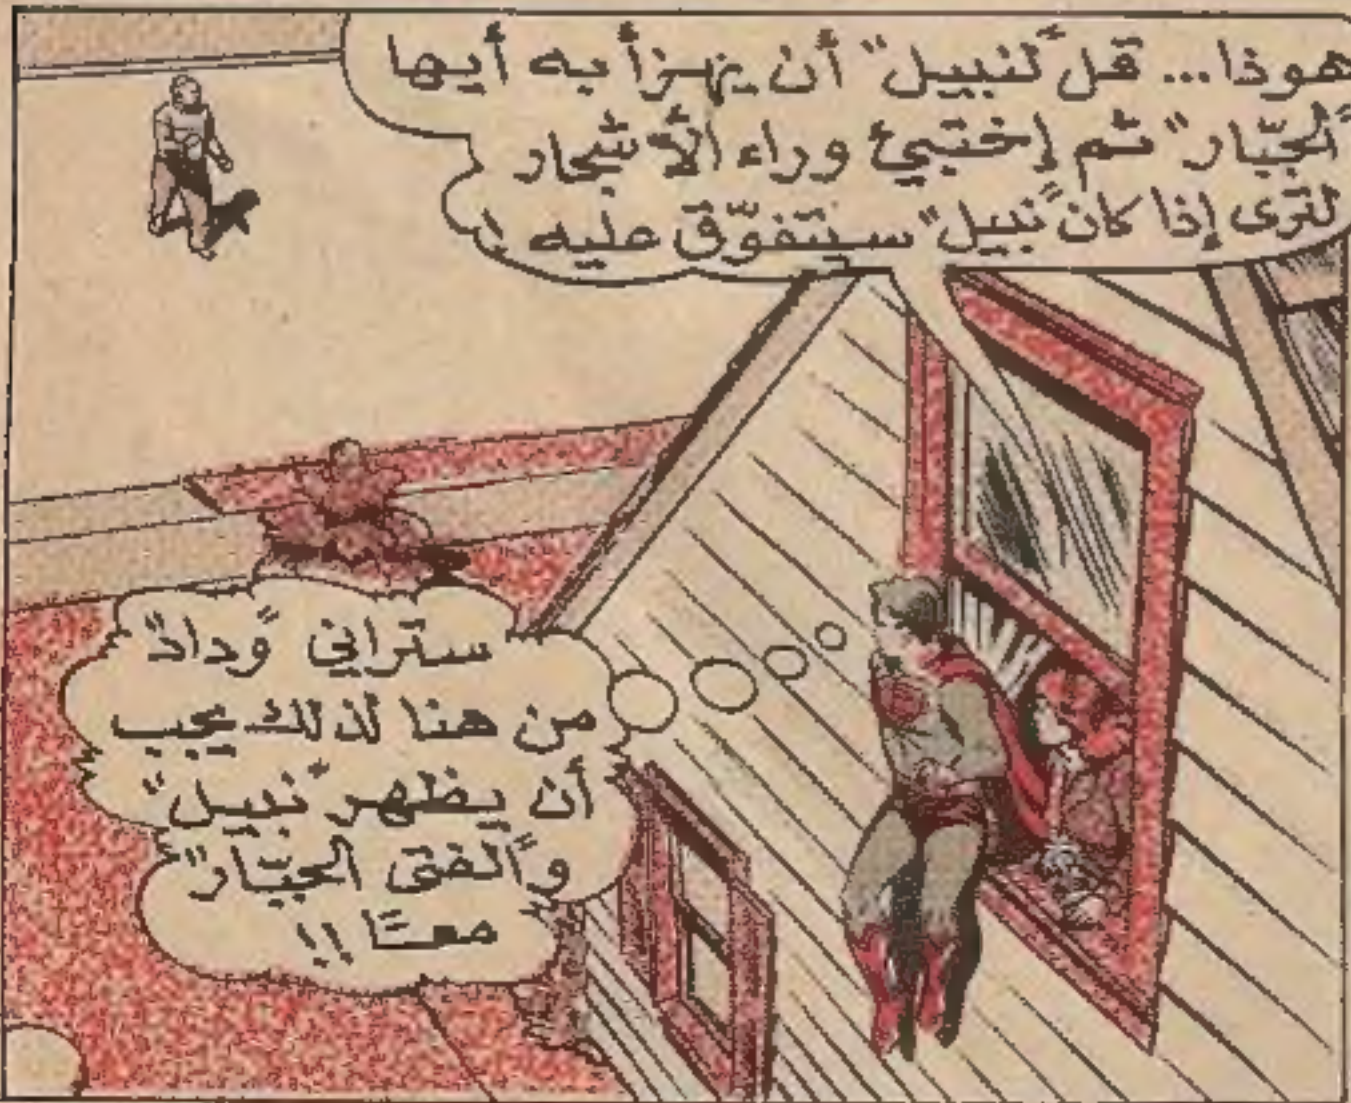 هوذا... قل "لنبيل" أن يهزأ به أيها
"الجبّار" ثم إختبئ وراء الأشجار
لترى إذا كان "نبيل" سيتفوّق عليه !
ستراني "وداد"
من هنا لذلك يجب
أن يظهر "نبيل"
و"الفتى الجبّار"
معًا !!